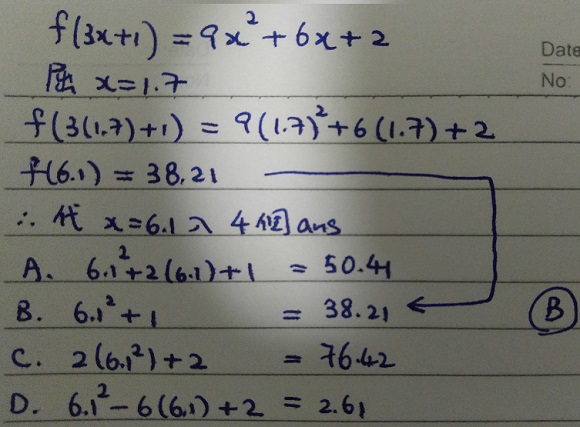 f(3x+1) = 9x²+6x+2
Date
屈 x=1.7
No:
f(3(1.7)+1) = 9(1.7)²+6(1.7)+2
f(6.1) = 38.21
∴ 代 x=6.1 入 4個 ans
A. 6.1²+2(6.1)+1 = 50.41
B. 6.1²+1 = 38.21
B
C. 2(6.1²)+2 = 76.42
D. 6.1²-6(6.1)+2 = 2.61